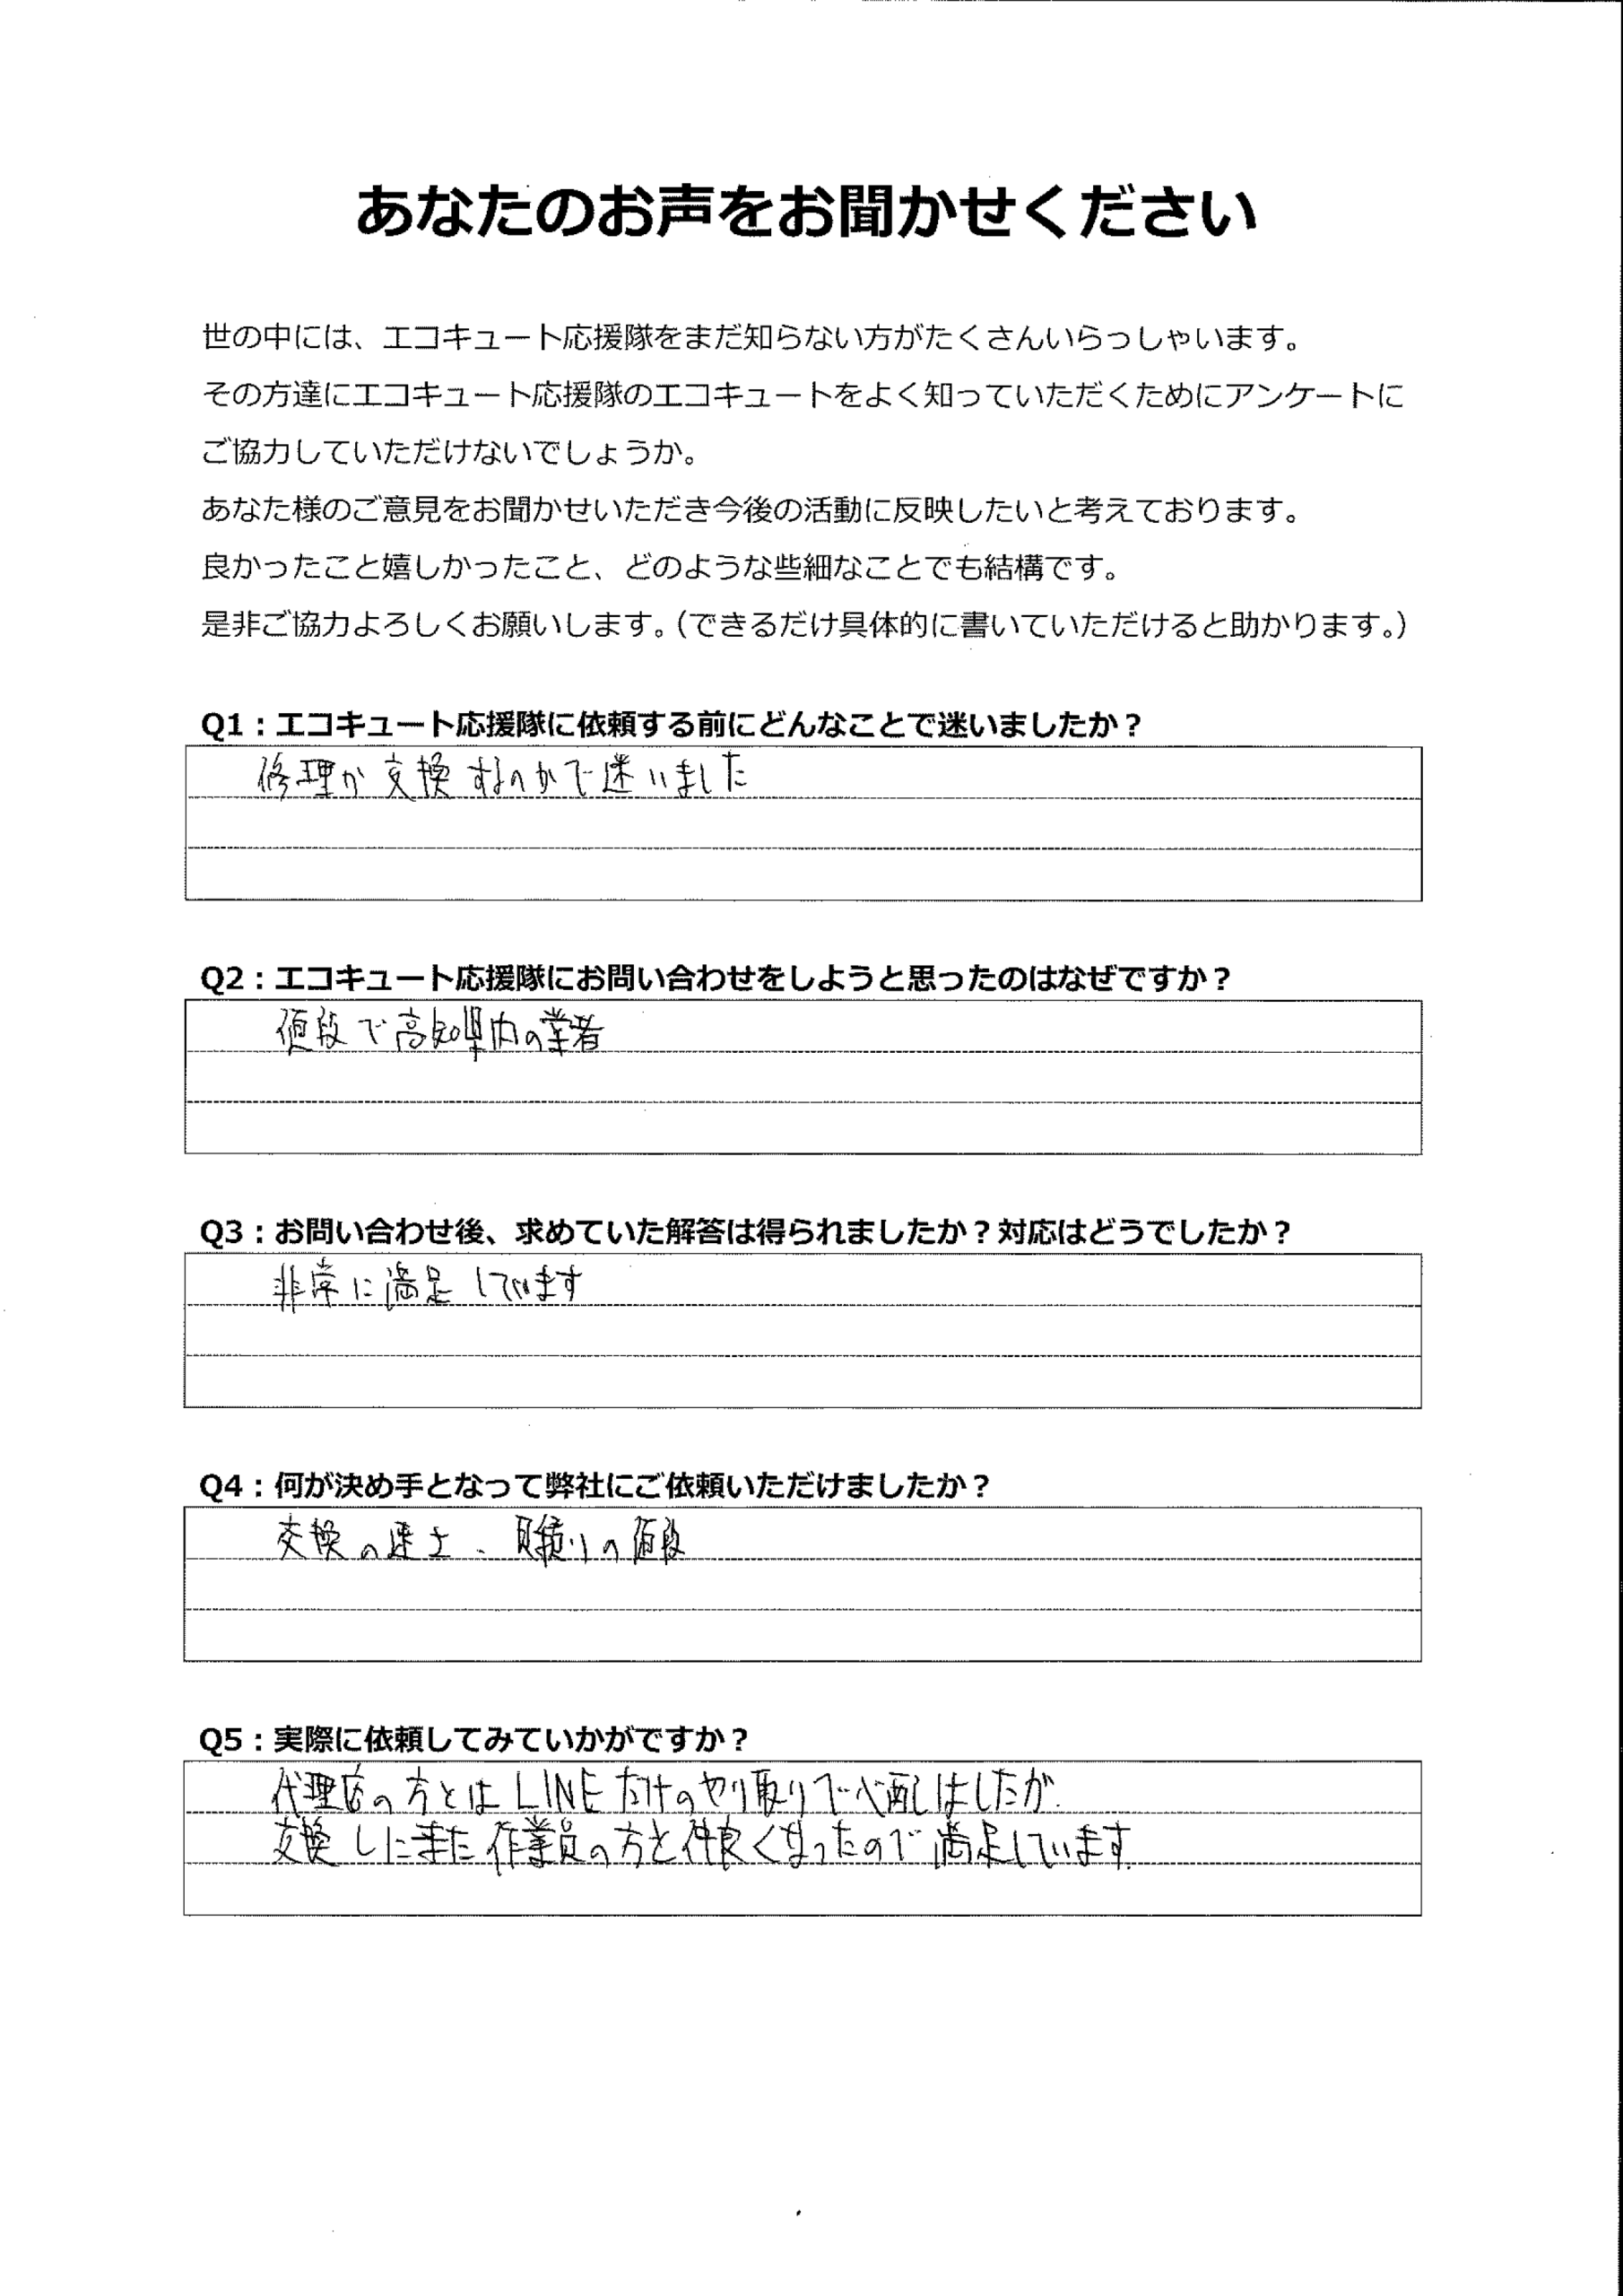 あなたのお声をお聞かせください
世の中には、エコキュート応援隊をまだ知らない方がたくさんいらっしゃいます。
その方達にエコキュート応援隊のエコキュートをよく知っていただくためにアンケートに
ご協力していただけないでしょうか。
あなた様のご意見をお聞かせいただき今後の活動に反映したいと考えております。
良かったこと嬉しかったこと、どのような些細なことでも結構です。
是非ご協力よろしくお願いします。（できるだけ具体的に書いていただけると助かります。）
Q1：エコキュート応援隊に依頼する前にどんなことで迷いましたか？
修理か交換するのかで迷いました
Q2：エコキュート応援隊にお問い合わせをしようと思ったのはなぜですか？
値段で高知県内の業者
Q3：お問い合わせ後、求めていた解答は得られましたか？対応はどうでしたか？
非常に満足しています
Q4：何が決め手となって弊社にご依頼いただけましたか？
交換の速さ、見積りの値段
Q5：実際に依頼してみていかがですか？
代理店の方とはLINEだけのやり取りで心配しましたが
交換しにきた作業員の方と仲良くなったので満足しています